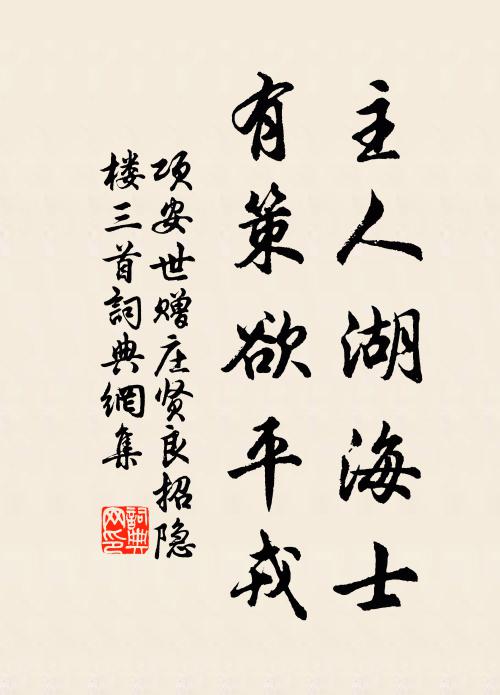 主人湖海士
有策欲平戎
项安世赠庄贤良招隐
楼三首詞典網集
詞典网印